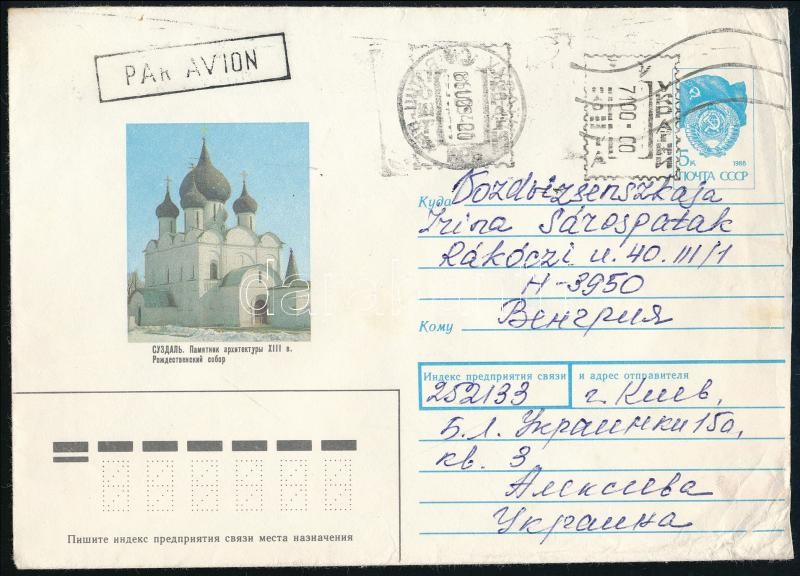 PAR AVION
71.00-00
5к
1988
ПОЧТА СССР
Куда
Irina Sárospatak
Rákóczi u. 40. III/1
H-3950
Кому Венгрия
СУЗДАЛЬ. Памятник архитектуры XIII в.
Рождественский собор
Индекс предприятия связи и адрес отправителя
252133 г. Киев,
Б.Л. Украинки 15а,
кв. 3
Алексеева
Украина
Пишите индекс предприятия связи места назначения